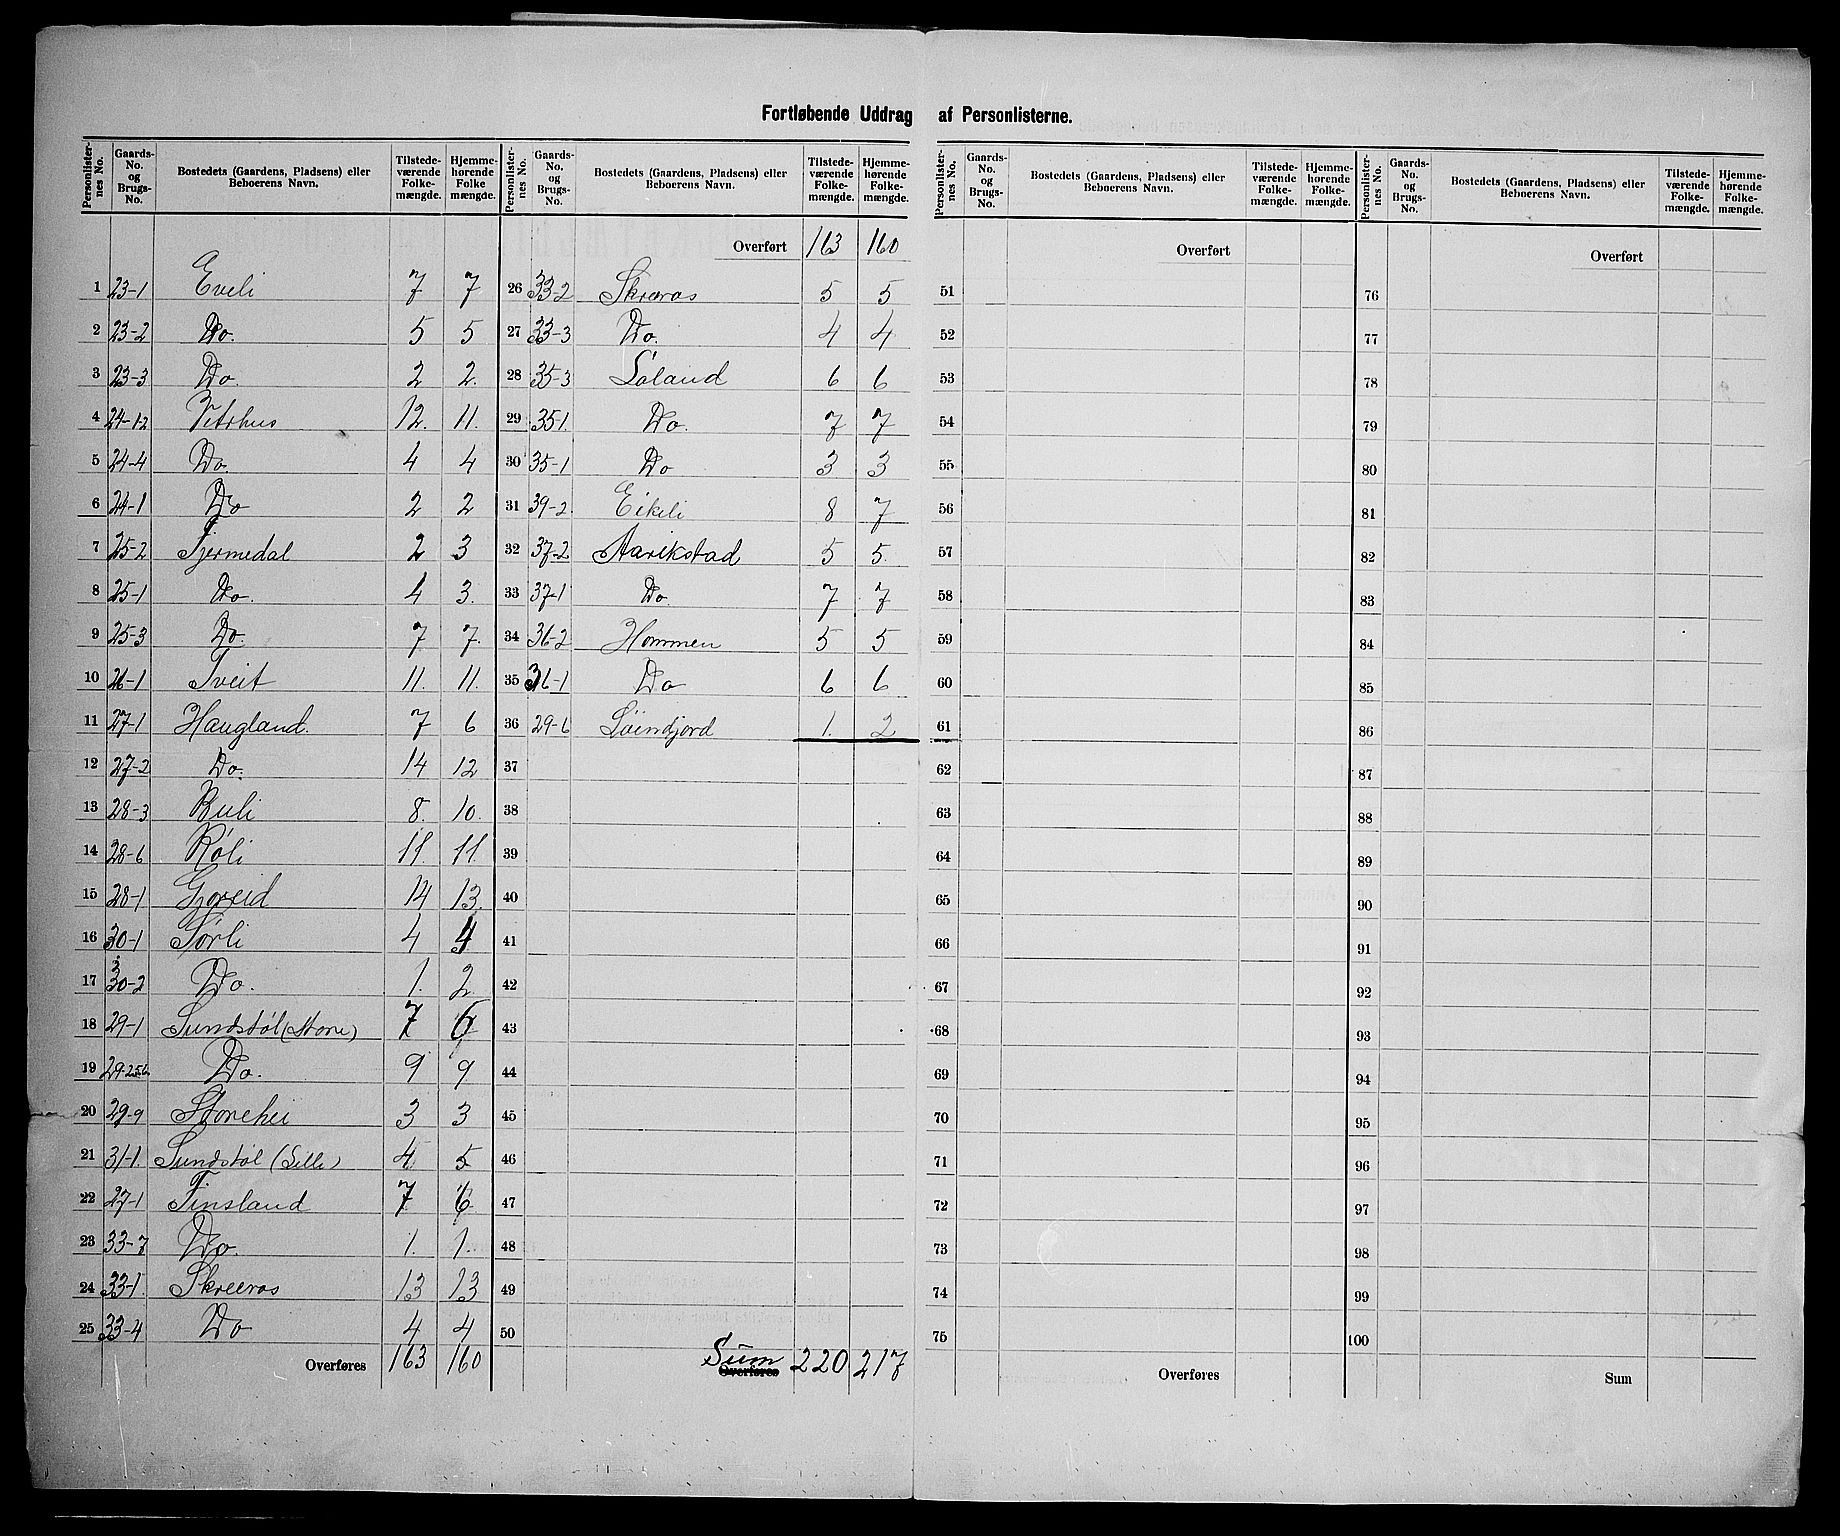 Fortløbende Uddrag af Personlisterne.
Personlisternes No. | Gaards-No. og Brugs-No. | Bostedets (Gaardens, Pladsens) eller Beboerens Navn. | Tilstedeværende Folkemængde. | Hjemmehørende Folke mængde.
1 23-1 Eveli 7 7
2 23-2 Do. 5 5
3 23-3 Do. 2 2.
4 24-12 Vetrhus 12. 11.
5 24-4 Do. 4 4
6 24-1 Do 2 2
7 25-2 Tjermedal 2 3
8 25-1 Do. 4 3.
9 25-3 Do. 7 7.
10 26-1 Tveit 11. 11.
11 27-1 Haugland. 7 6
12 27-2 Do. 14 12
13 28-3 Buli 8. 10.
14 28-6 Røli 11. 11.
15 28-1 14 13.
16 30-1 Sørli 4 4
17 30-2 Do. 1. 2
18 29-1 Sundstøl (Store) 7 6
19 Do. 9 9
20 29-9 Storehei 3 3
21 31-1. Sundstøl (Lille) 4 5
22 27-1 Finsland 7 6
23 33-7 Do. 1. 1.
24 33-1. Skreeros 13 13
25 33-4 Do 4 4
Overføres 163 160
Personlisternes No. | Gaards-No. og Brugs-No. | Bostedets (Gaardens, Pladsens) eller Beboerens Navn. | Tilstedeværende Folkemængde. | Hjemmehørende Folkemængde.
Overført 163 160
26 33-2 Skreros 5 5
27 33-3 Do. 4 4
28 35-3 Løland 6 6
29 35-1. Do. 7 7
30 35-1 Do 3 3
31 39-2 Eikeli 8 7
32 37-2 Aarikstad 5 5.
33 37-1 Do. 7 7
34 36-2 Hommen 5 5
35 36-1 Do 6 6
36 29-6 1. 2
37
38
39
40
41
42
43
44
45
46
47
48
49
50
Sum Overføres 220 217
Personlisternes No. | Gaards-No. og Brugs-No. | Bostedets (Gaardens, Pladsens) eller Beboerens Navn. | Tilstedeværende Folkemængde. | Hjemmehørende Folkemængde.
Overført
51
52
53
54
55
56
57
58
59
60
61
62
63
64
65
66
67
68
69
70
71
72
73
74
75
Overføres
Personlisternes No. | Gaardens, No. og Brugs-No. | Bostedets (Gaardens, Pladsens) eller Beboerens Navn. | Tilstedeværende Folkemængde. | Hjemmehørende Folkemængde.
Overført
76
77
78
79
80
81
82
83
84
85
86
87
88
89
90
91
92
93
94
95
96
97
98
99
100
Sum